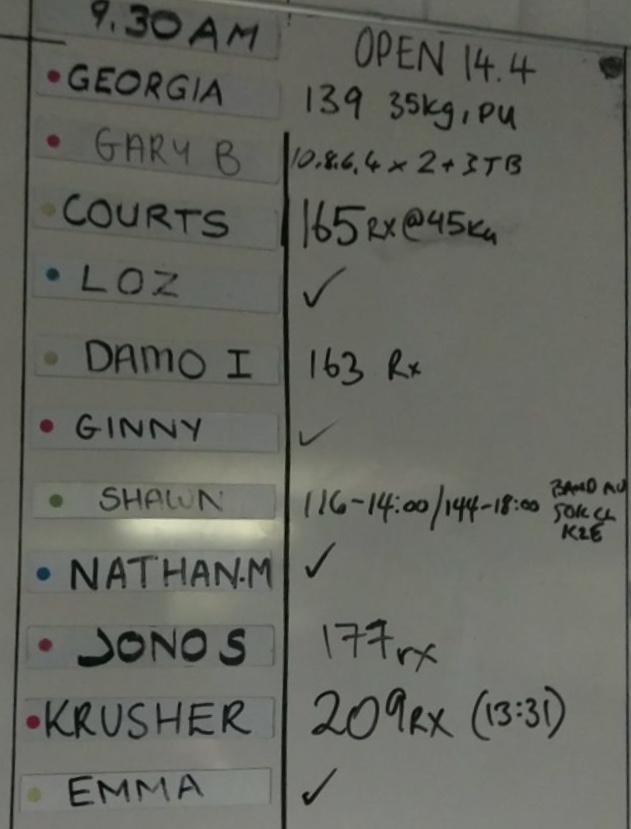 9.30AM OPEN 14.4
GEORGIA 139 35kg, PU
GARY B 10.8.6.4 x 2 + 3TB
COURTS 165 RX@45KG
LOZ ✓
DAMO I 163 Rx
GINNY ✓
SHAWN 116-14:00/144-18:00 BAND
50K CL
K2E
NATHAN.M ✓
JONO S 177 rx
KRUSHER 209 RX (13:31)
EMMA ✓